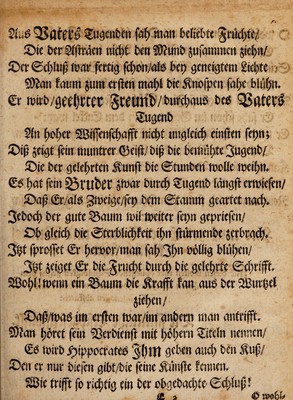 Aus Vaters Tugenden sah man beliebte Früchte/
Die der Asträen nicht den Mund zusammen ziehn/
Der Schluß war fertig schon/als bey geneigtem Lichte
Man kaum zum ersten mahl die Knospen sahe blühn.
Er wird/geehrter Freund/durchaus des Vaters
Tugend
An hoher Wissenschafft nicht ungleich einsten seyn;
Diß zeigt sein muntrer Geist/diß die bemühte Jugend/
Die der gelehrten Kunst die Stunden wolle weihn.
Es hat sein Bruder zwar durch Tugend längst erwiesen/
Daß Er/als Zweige/sey dem Stamm geartet nach.
Jedoch der gute Baum wil weiter seyn gepriesen/
Ob gleich die Sterblichkeit ihn stürmende zerbrach.
Itzt sprosset Er hervor/man sah Ihn völlig blühen/
Itzt zeiget Er die Frucht durch die gelehrte Schrifft.
Wohl! wenn ein Baum die Krafft kan aus der Wurtzel
ziehen/
Daß/was im ersten war/im andern man antrifft.
Man höret sein Verdienst mit höhern Titeln nennen/
Es wird Hippocrates Ihm geben auch den Kuß/
Den er nur diesen gibt/die seine Künste kennen.
Wie trifft so richtig ein der obgedachte Schluß!
O wohl-